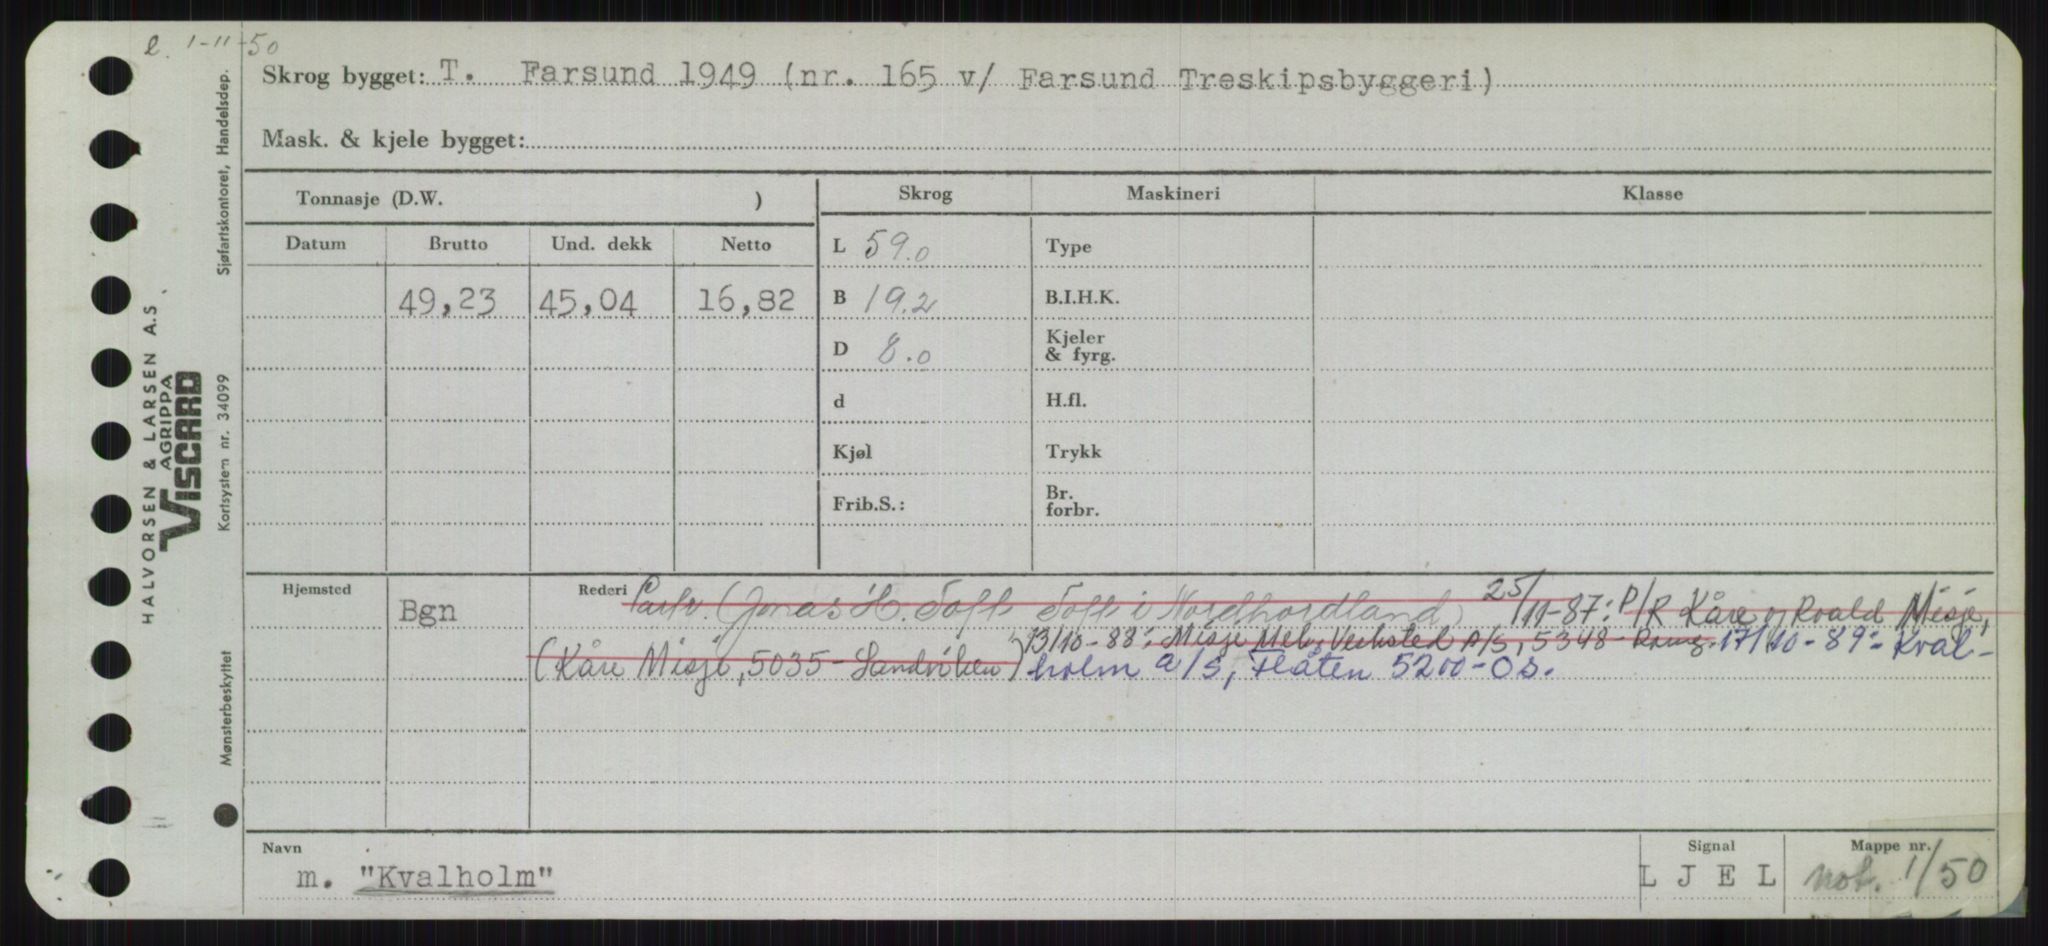 e. 1-11-50
Skrog bygget: T. Farsund 1949 (nr. 165 v/ Farsund Treskipsbyggeri)
Mask. & kjele bygget:
Tonnasje (D.W. )
Skrog Maskineri Klasse
Datum Brutto Und. dekk Netto
49,23 45,04 16,82
L 59.0 Type
B 19.2 B.I.H.K.
D 8.0 Kjeler & fyrg.
d H.fl.
Kjøl Trykk
Frib.S.: Br. forbr.
Hjemsted Bgn
Rederi Partr. (Jonas H. Toft Toft i Nordhordland) 25/11-87: P/R Kåre og Roald Misje,
(Kåre Misje, 5035 - Sandviken) 13/10-88: Misje Mek. Verksted A/S, 5348 - Rong. 17/10-89: Kval-
holm a/s, Flåten 5200-Os.
Navn Signal Mappe nr.
m. "Kvalholm" L J E L not. 1/50
HALVORSEN & LARSEN A.S
AGRIPPA
VISCARD
Sjøfartskontoret, Handelsdep.
Kortsystem nr. 34099
Mønsterbeskyttet